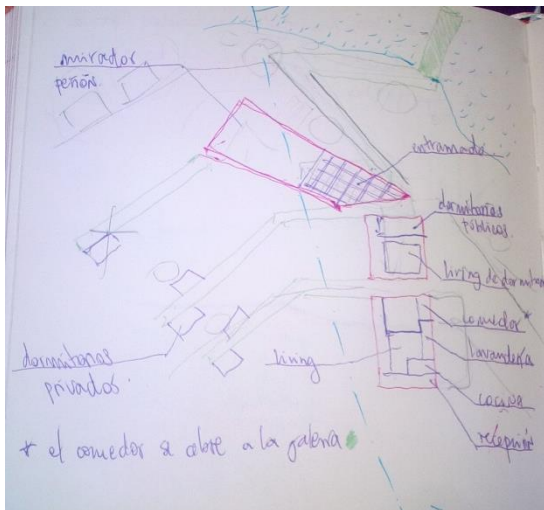 mirador
peñón.
entramado
dormitorios
públicos.
living de dormitorio
comedor
lavandería
cocina
recepción
living
dormitorios
privados.
* el comedor se abre a la galería